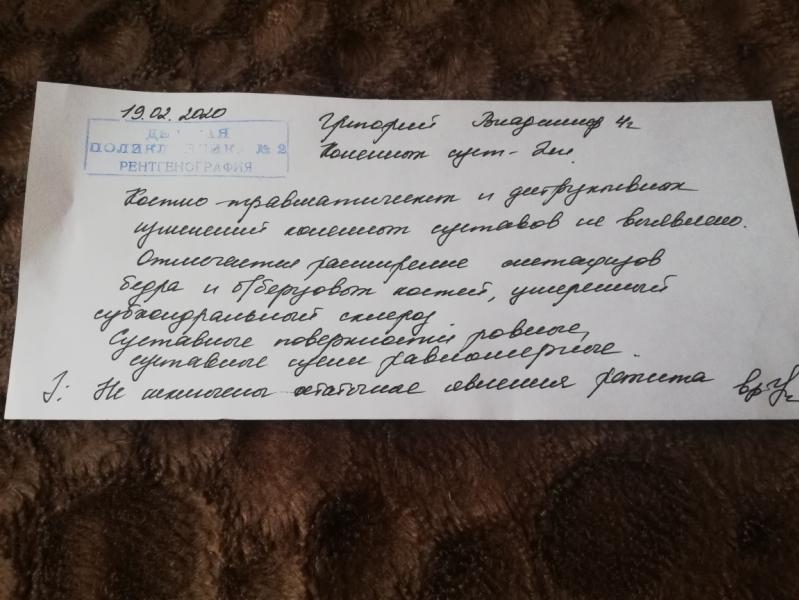 19.02.2020
ДЕТСКАЯ
ПОЛИКЛИНИКА № 2
РЕНТГЕНОГРАФИЯ
Григорий Владимир 4г
Коленных суст-
Костно-травматических и деструктивных
изменений коленных суставов не выявлено.
Отмечается расширение метафизов
бедра и б/берцовых костей, умеренный
субхондральный склероз.
Суставные поверхности ровные,
суставные щели равномерные.
З: Не исключены остаточные явления рахита вр